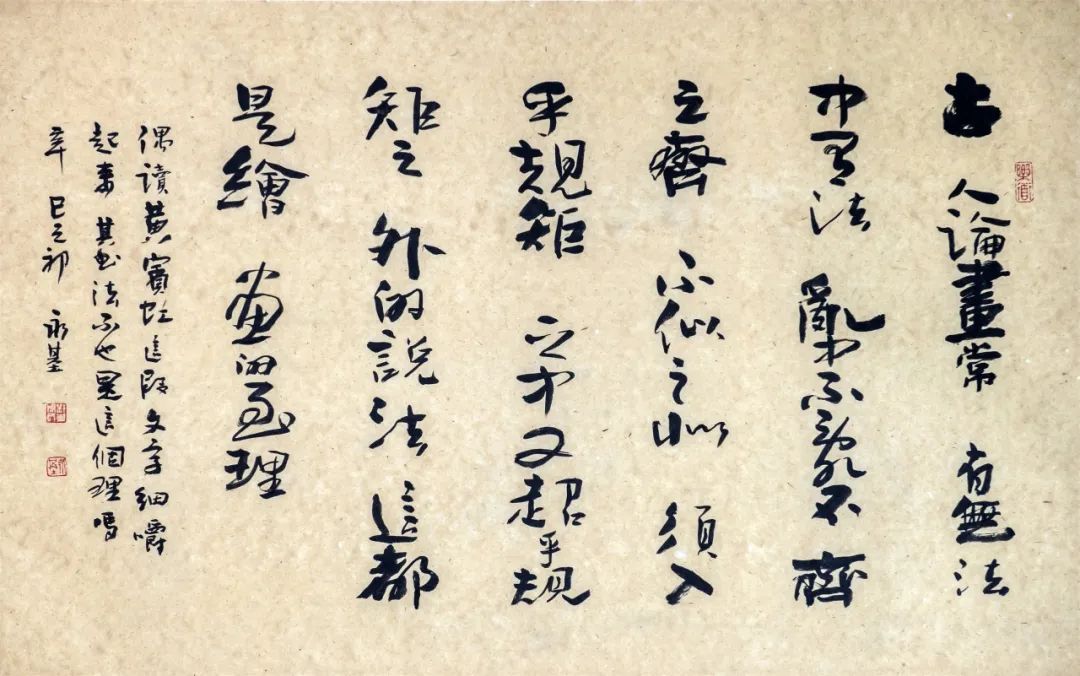 古人論畫常有無法
中有法亂中不亂不齊
之齊不似之似須入
乎規矩之中又超乎規
矩之外的說法這都
是繪畫的至理
偶讀黃賓虹這段文字細嚼
起來其書法不也是這個理嗎
辛巳之初永基